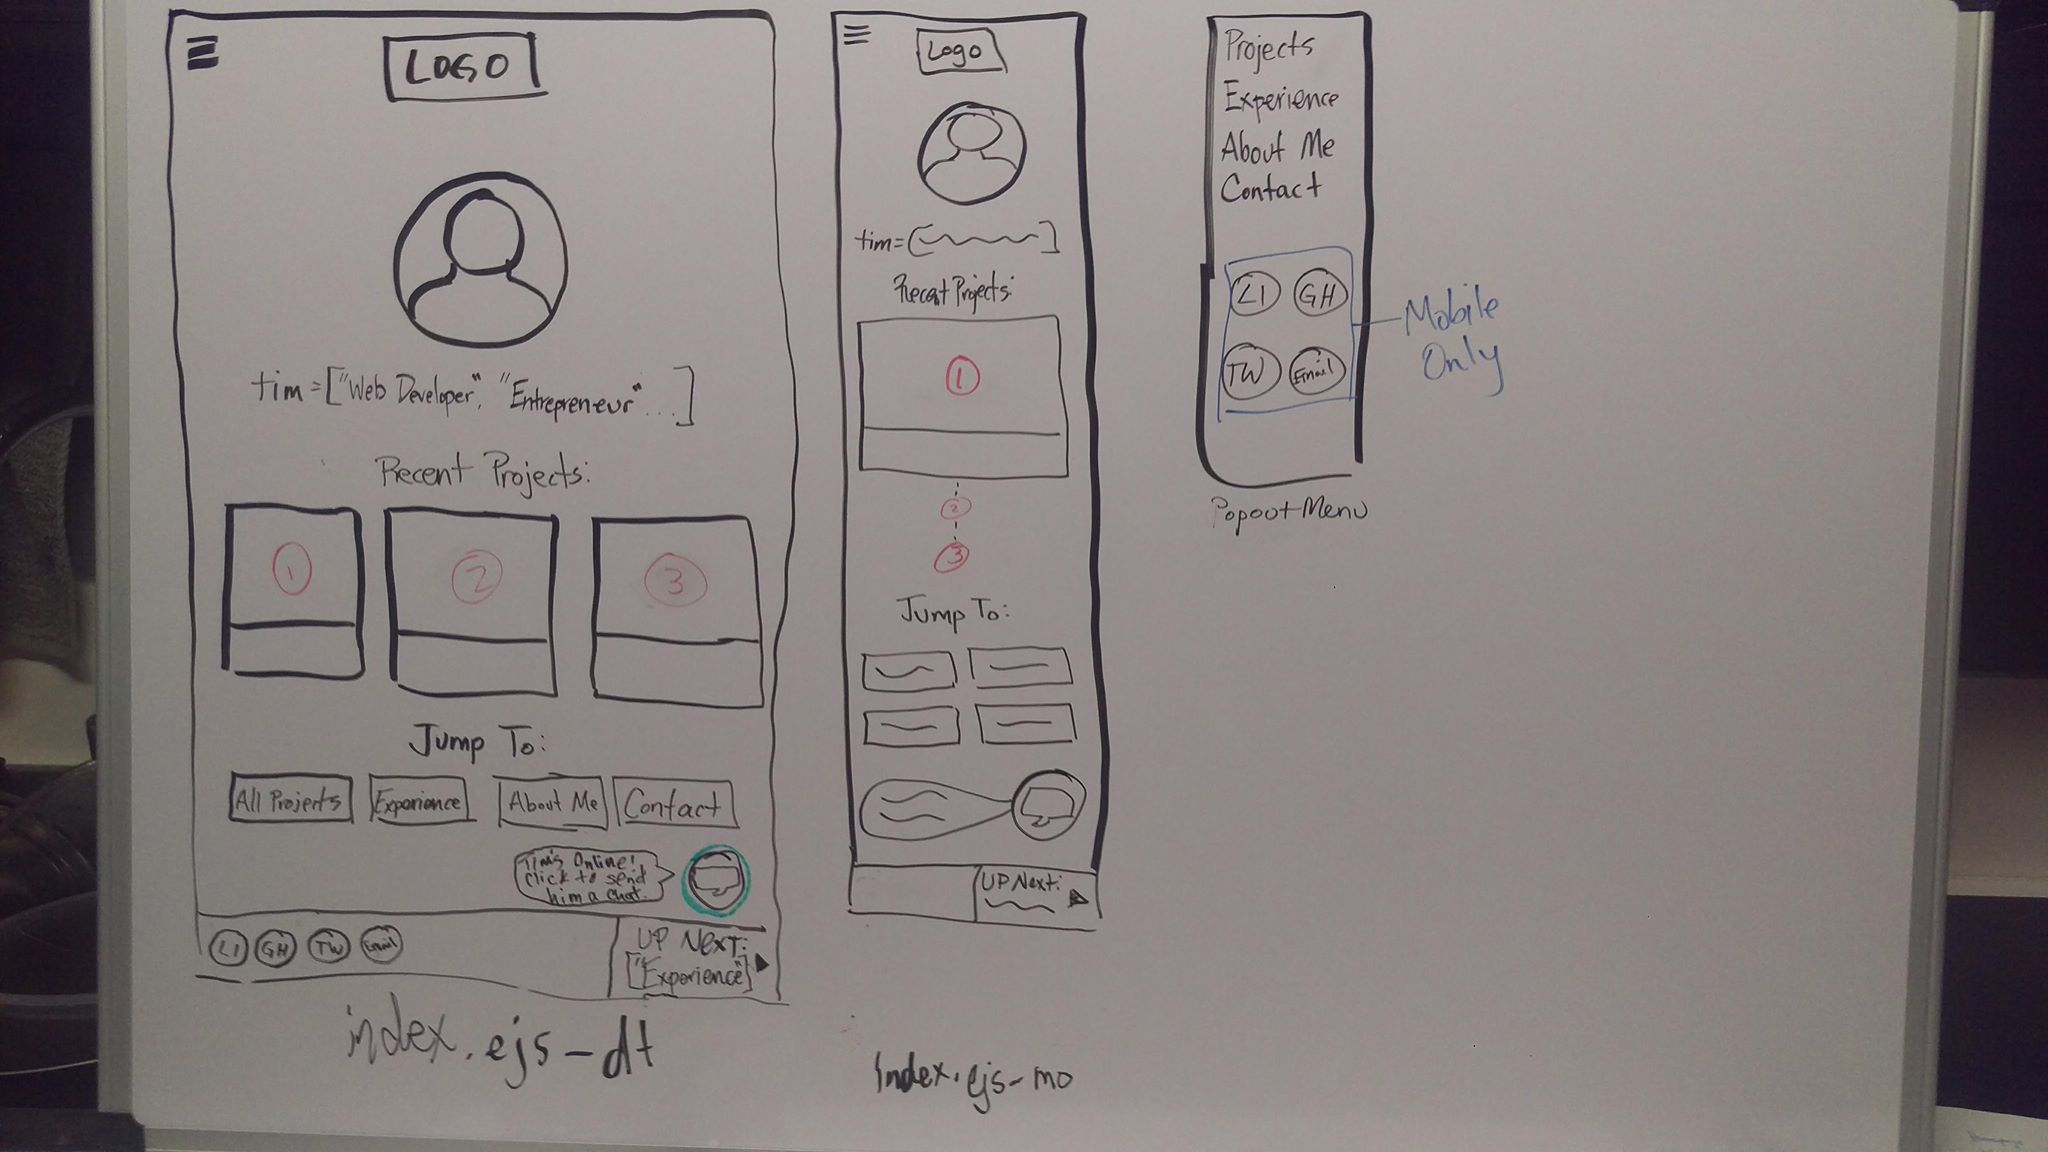 LOGO
tim=["Web Developer", "Entrepreneur" ...]
Recent Projects:
1
2
3
Jump To:
All Projects
Experience
About Me
Contact
Tim's Online!
Click to send
him a chat.
LI
GH
TW
Email
UP Next:
["Experience"]
index.ejs-dt
Logo
tim=[
]
Recent Projects:
1
2
3
Jump To:
UP Next:
Index.ejs-mo
Projects
Experience
About Me
Contact
LI
GH
TW
Email
Mobile
Only
Popout Menu